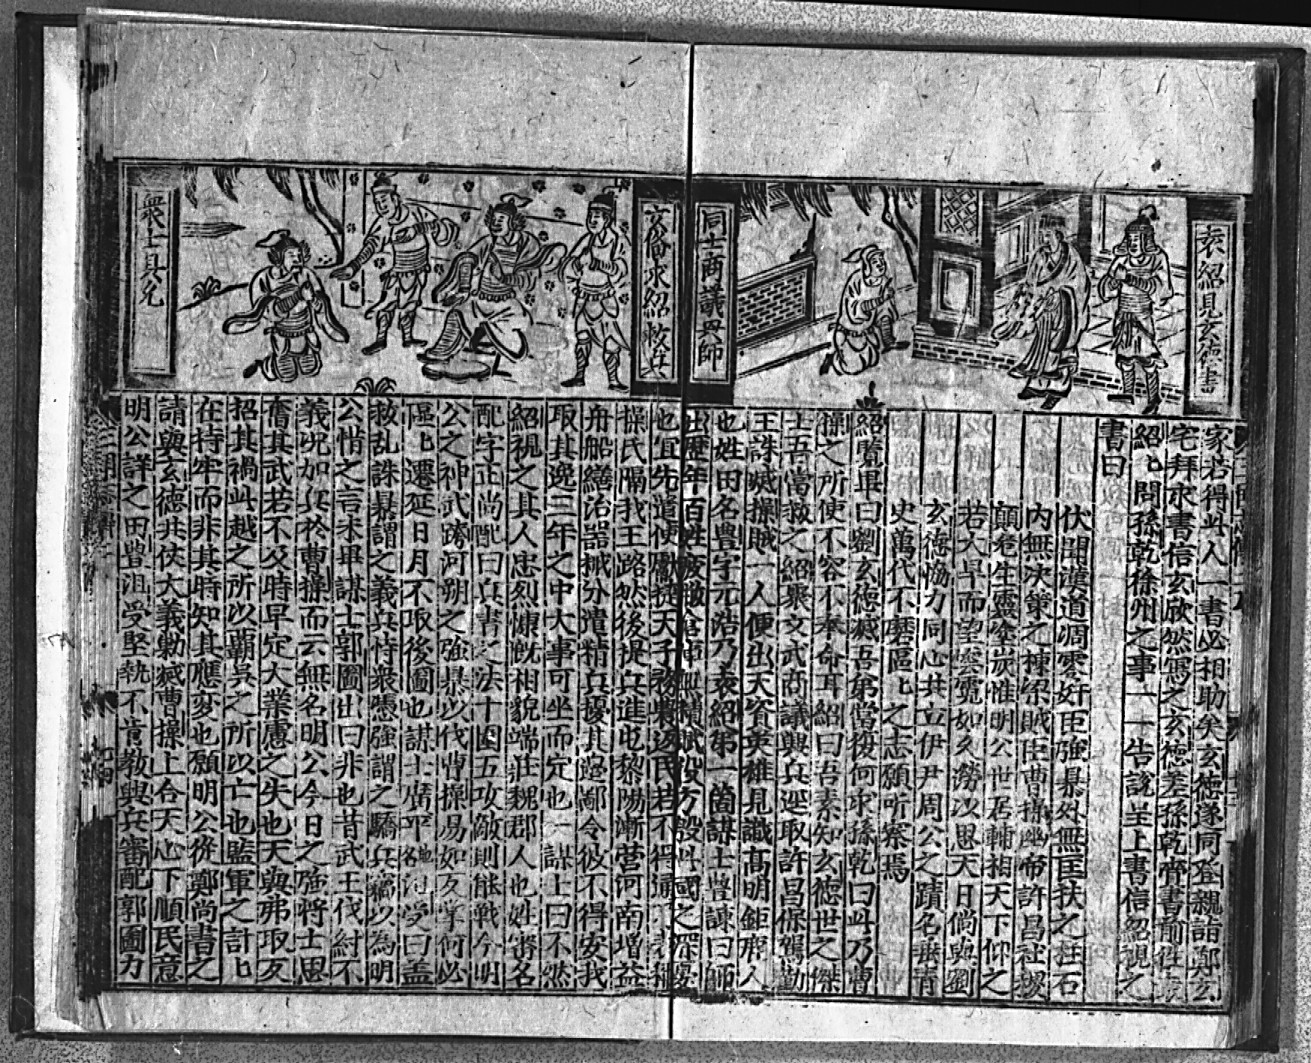 袁紹見玄德書
同士商議興師
家若得此人一書必相助矣玄德遂同登親詣鄭玄
宅拜求書信玄欣然寫之玄德差孫乾齎書前往袁
紹紹問孫乾徐州之事一一告說呈上書信紹視之
書曰
伏聞漢道凋零奸臣強暴外無匡扶之柱石
內無決策之棟梁賊臣曹操幽帝許昌社稷
顛危生靈塗炭惟明公世居輔相天下仰之
若大旱而望雲霓如久澇以思天日倘與劉
玄德恊力同心共立伊尹周公之蹟名垂青
史萬代不磨區區之志願听察焉
紹覽畢曰劉玄德滅吾弟當復何求孫乾曰此乃曹
操之所使不容不奉命耳紹曰吾素知玄德世之傑
士吾當救之紹聚文武商議興兵逕取許昌保駕勤
王誅滅操賊一人便出天資英雄見識高明鉅鹿人
也姓田名豊字元浩乃袁紹第一箇謀士豊諫曰師
出歷年百姓疲弊倉庫無積賦役方殷此國之深憂
玄德求紹救兵
眾士具允
也宜先遣使獻捷天子務農逸民若不得通
操氏隔我王路然後提兵進屯黎陽漸營河南增益
舟船繕治器械分遣精兵擾其邊鄙令彼不得安我
取其逸三年之中大事可坐而定也一謀士曰不然
紹視之其人忠烈慷慨相貌端莊魏郡人也姓審名
配字正尚配曰兵書之法十圍五攻敵則能戰今明
公之神武跨河朔之強暴以伐曹操易如反掌何必
區區遷延日月不取後圖也謀士廣平沮受曰盖
救乱誅暴謂之義兵恃衆憑強謂之驕兵竊以為明
公惜之言未畢謀士郭圖出曰非也昔武王伐紂不
義况加兵於曹操而云無名明公今日之強將士思
奮其武若不及時早定大業慮之失也天與弗取反
招其禍此越之所以霸吳之所以亡也監軍之計計
在持牢而非其時知其應变也願明公從鄭尚書之
請與玄德共伏大義勦滅曹操上合天心下順民意
明公詳之田豊沮受堅執不肯教興兵審配郭圖力